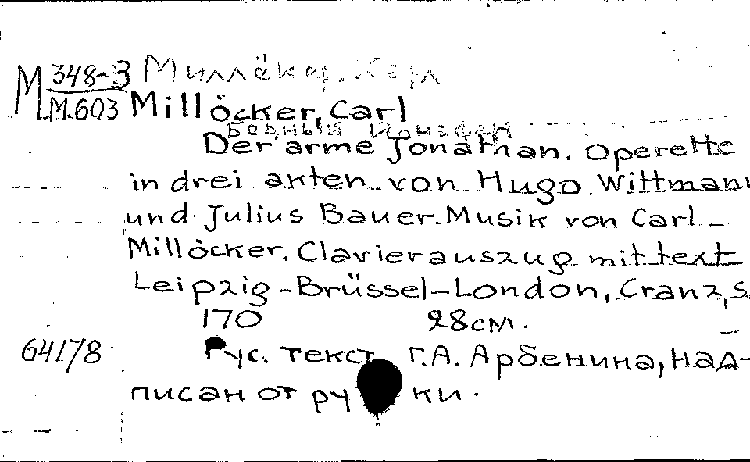 М 348-3 Миллёкер, Карл
М.603 Millöcker, Carl
Бедный Ионафан
Der arme Jonathan. Operette
in drei akten von Hugo Wittmann
und Julius Bauer. Musik von Carl
Millöcker. Clavierauszug mit text
Leipzig-Brüssel-London, Cranz, s
170 28см.
64178 Рус. текст Г.А. Арбенина, над-
писан от ру ки.